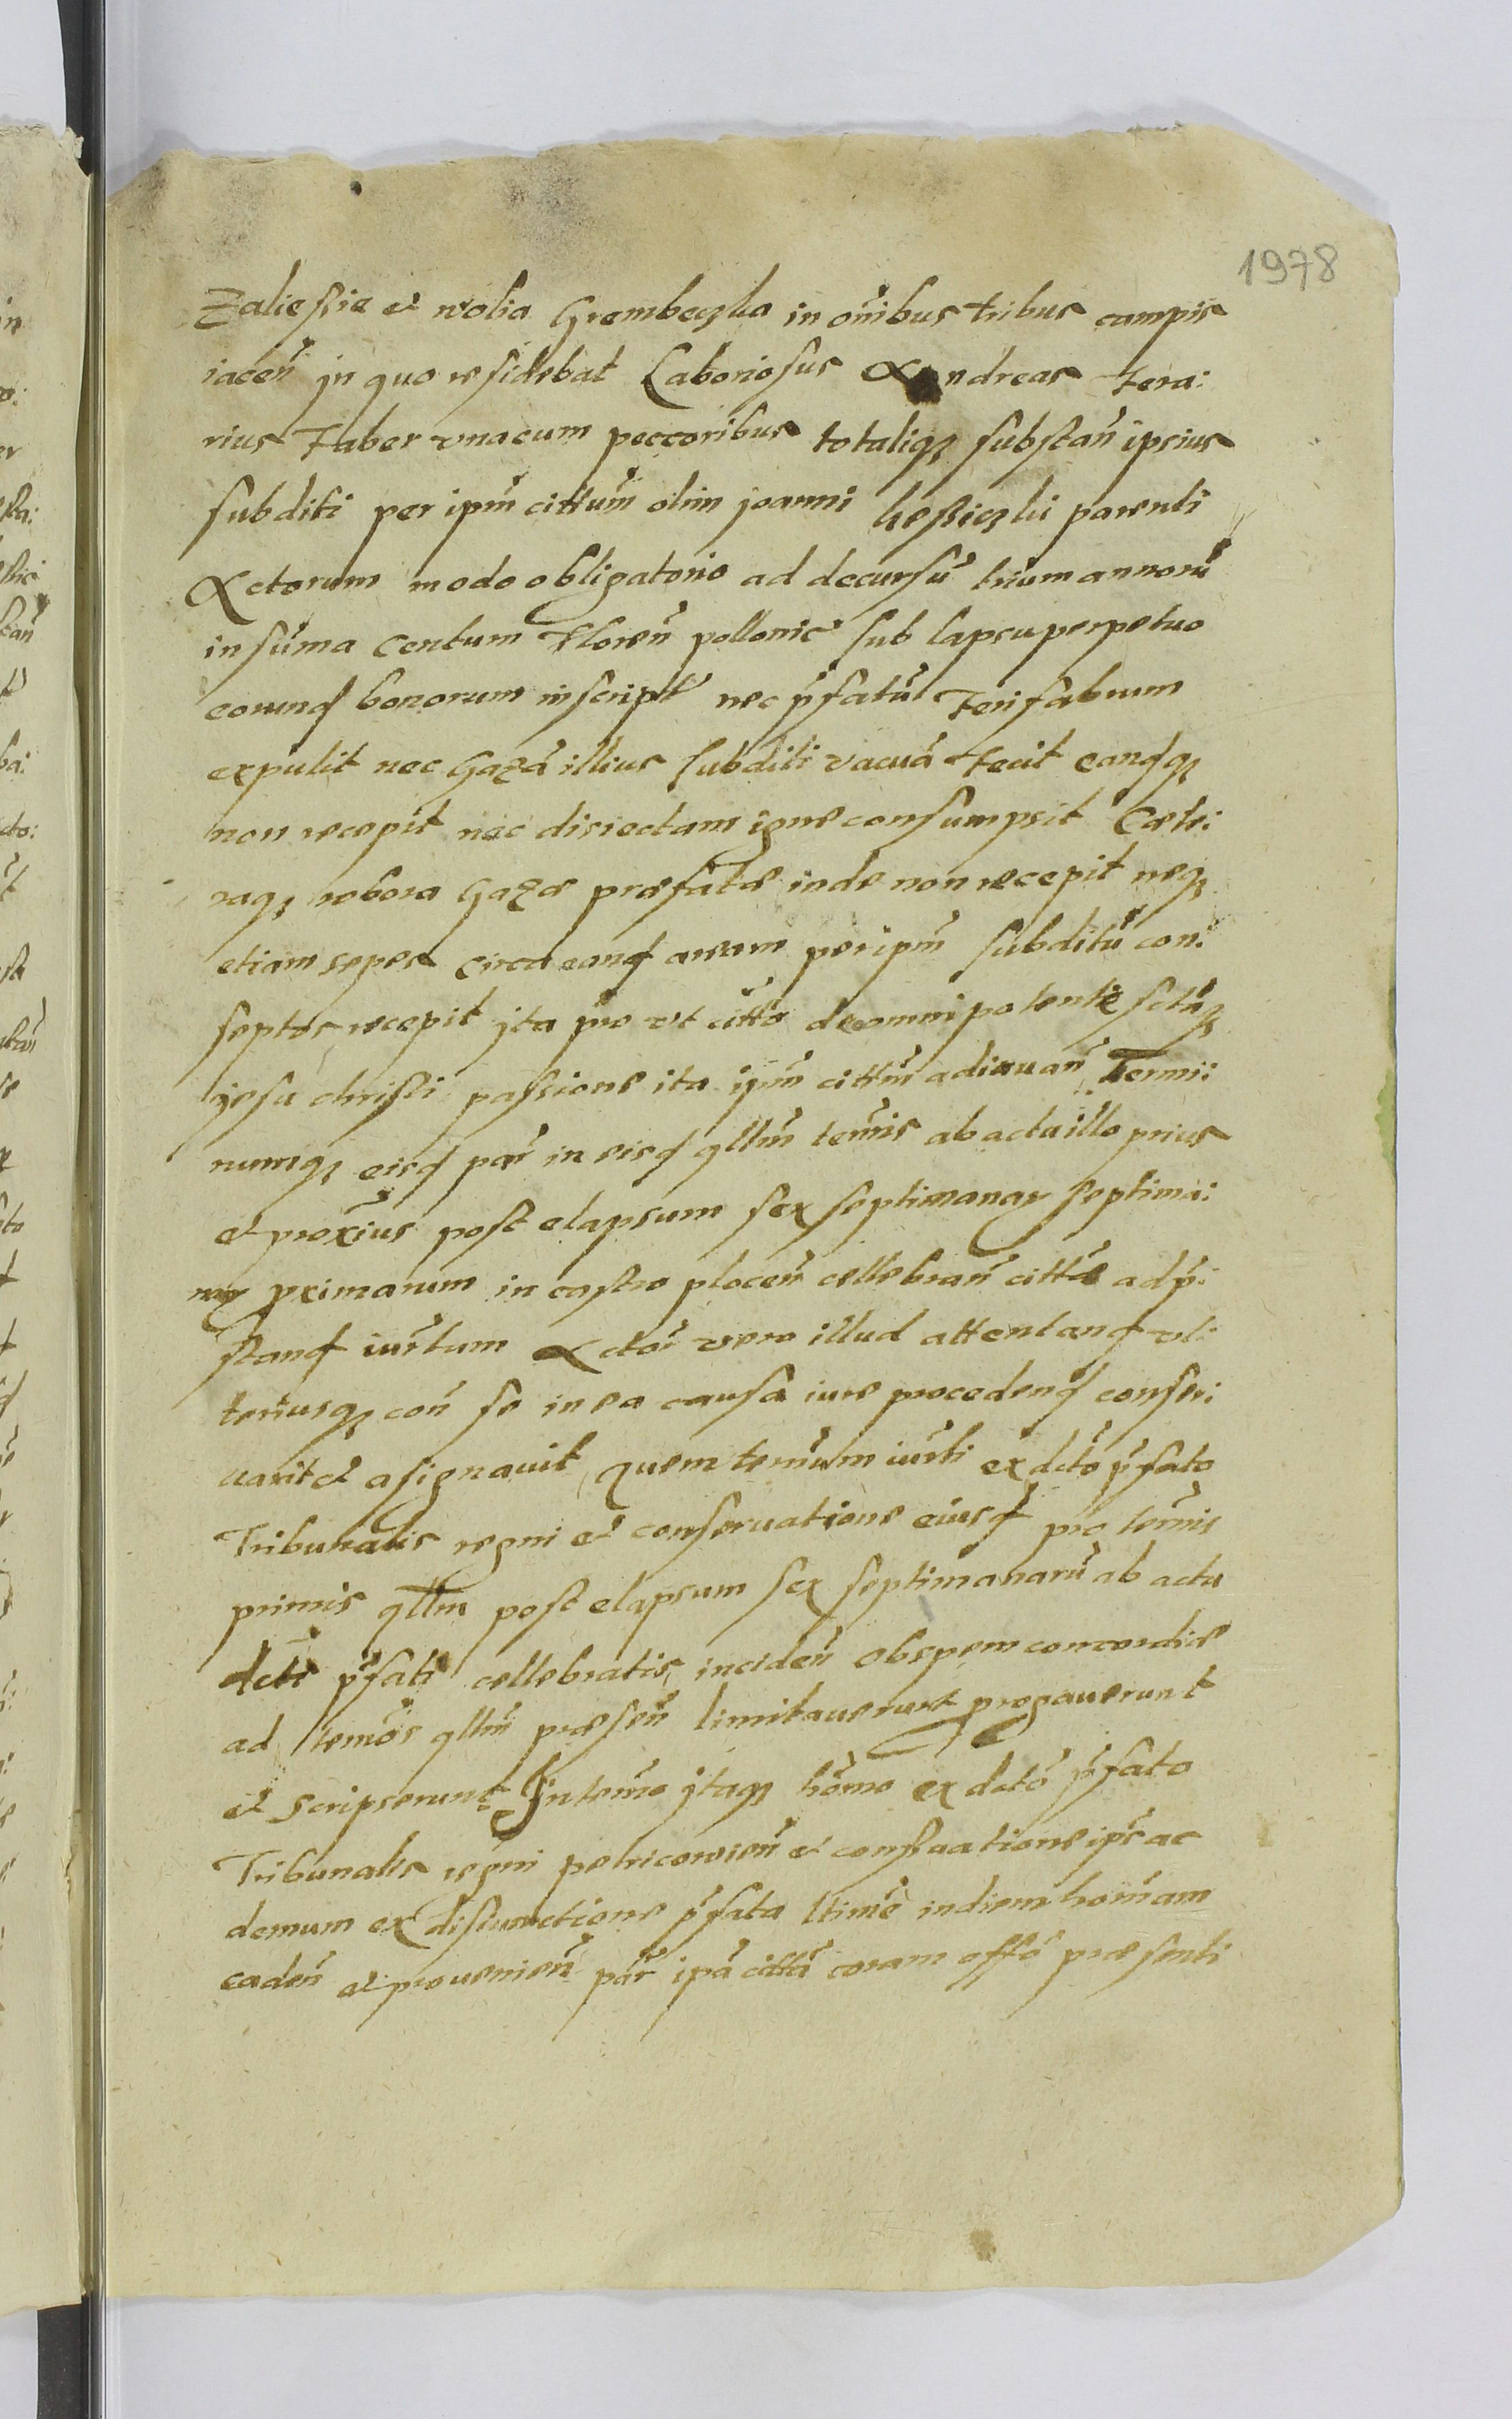 1978
Zaliesie et wolia Grembeczka in oĩbus tribus campis
iaceñ jn quo residebat Laboriosus Andreas Fera:
rius Faber vnacum peccoribus totaliq; substañ ipsius
subditi per ipm̃ cittum̃ olim joanni parenti
Actorum modo obligatorio ad decursũ trium annorũ
in sũma Centum Floreñ pollonic̃ sub lapsu perpetuo
eorund bonorum inscript̃ nec p̃fatũ Ferifabrum
expulit nec Gazã illius subditi vacuã fecit eandq;
non recepit nec disiectam igne consumpsit Cæte:
raq; robora Gazæ præfatæ inde non recepit neq;
etiam sepes circa eand aream per ipm̃ subditũ con:
septas recepit jta pro vt citto de omnipotente
jesu christi passione ita ipm̃ cittm̃ adiuuañ Termi:
numq; eisd par̃ in eisd qllm̃ term̃is ab actu illo prius
et proxĩus post elapsum sex septimanar septima:
nar primarum in castro plocen̄ cellebrañ cittæ ad p̃:
stand iur̃tum Actor̃ vero illud attentand vl:
teriusq; coñ se in ea causa iure procedend conser:
uarit et asignauit, quem term̃um iur̃ti ex dcto p̃fato
Tribunalis regni et conseruatione eiusd pro term̃is
primis qllm̃ post elapsum sex septimanarũ ab actu
dcti p̃fati cellebratis, incideñ ob spem concordiæ
ad term̃os qllm̃ præseñ limitauerunt progauerunt
et scripserunt. In term̃o jtaq; hor̃no ex dcto p̃fato
Tribunalis regni petricouieñ et conseruatione ips̃ ac
demum ex p̃fata ltime in diem hor̃nam
cadeñ et proueniẽn par̃ ipã cittã coram offo præsenti